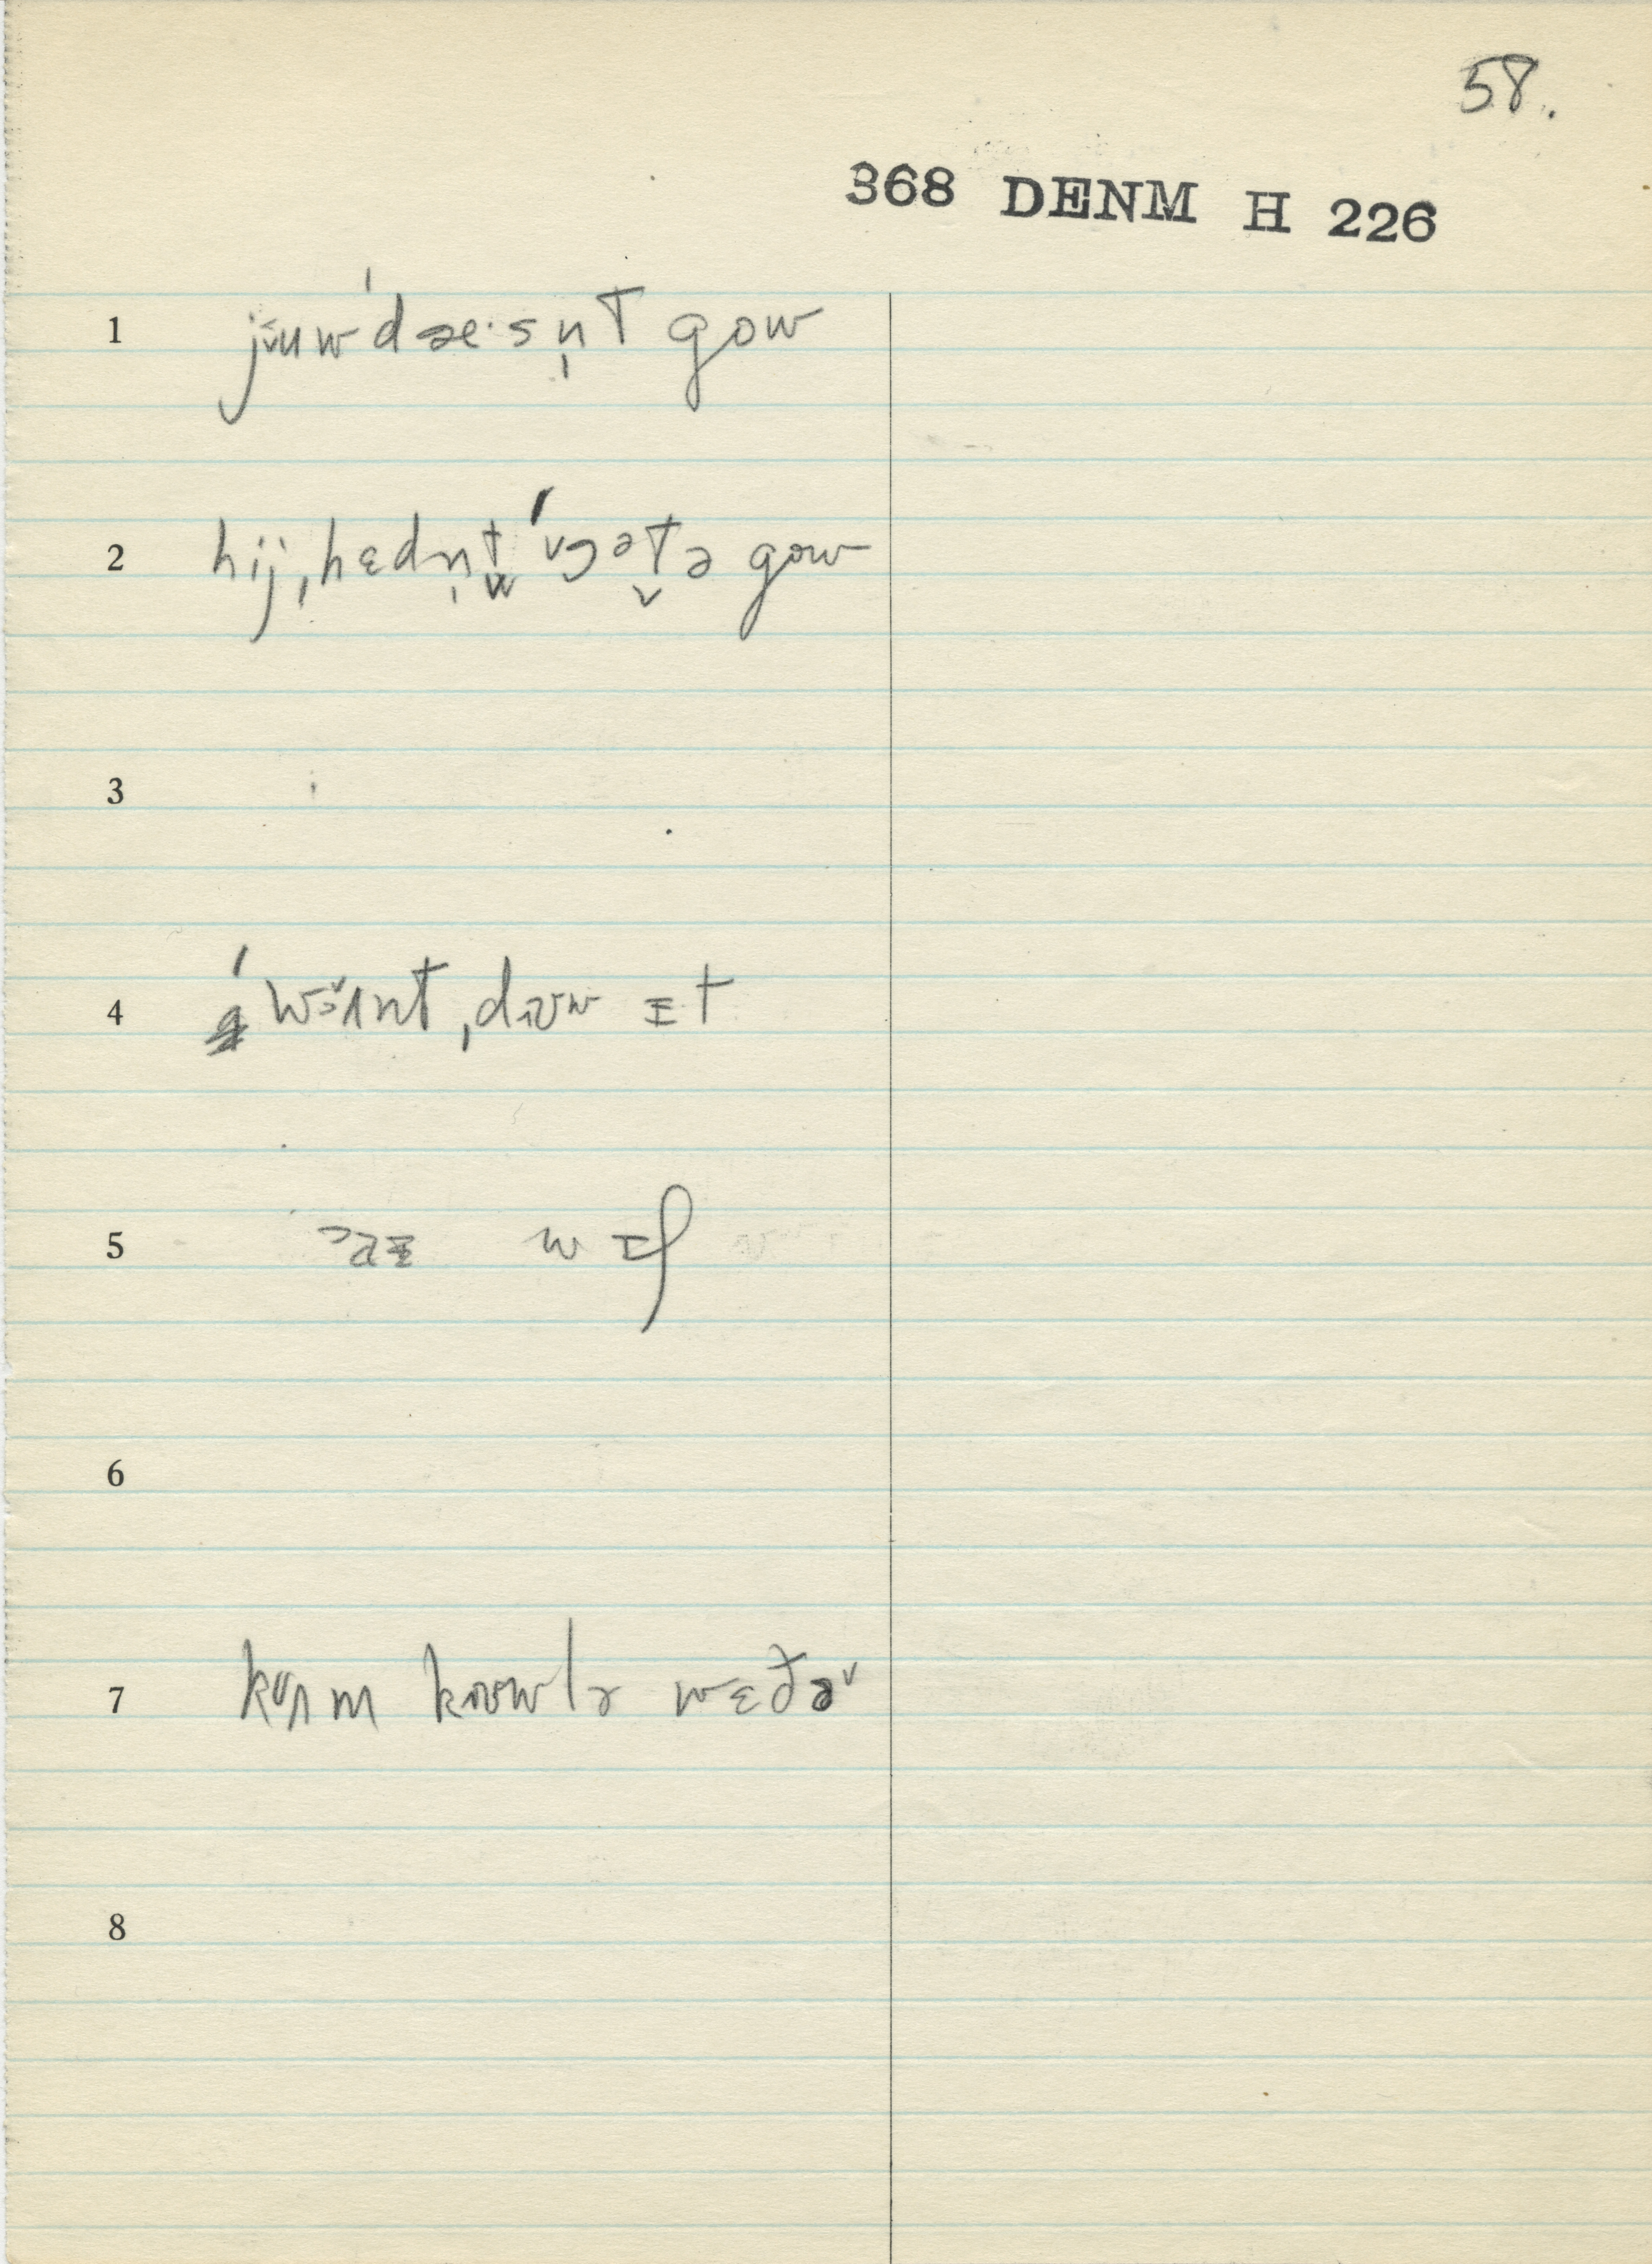 58.
368 DENM H 226
1 jŭuw ˈdæ·sn̩t gow
2 hij ˌhɛdn̩t̬ ˈɔət̬ə gow
3
4 ˈwɔ̆ʌnt ˌdɪʊw ɪt
5 wɪf
6
7 kʌm kɪʊwlə wɛðə
8